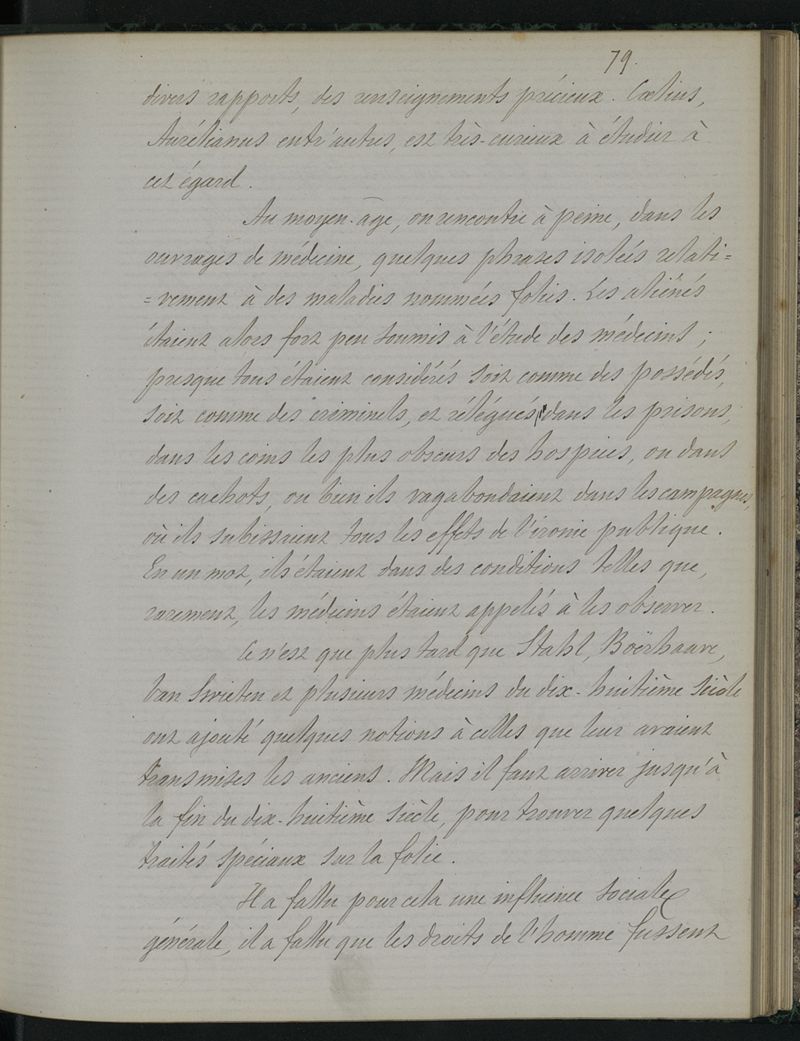 79.
divers rapports, des renseignements précieux. Cœlius,
Aurélianus entr'autres, est très-curieux à étudier à
cet égard.
Au moyen-âge, on rencontre à peine, dans les
ouvrages de médecine, quelques phrases isolées relati=
=vement à des maladies nommées folies. Les aliénés
étaient alors fort peu soumis à l'étude des médecins ;
presque tous étaient considérés soit comme des possédés,
soit comme des criminels, et rélégués, dans les prisons,
dans les coins les plus obscurs des hospices, ou dans
des cachots, ou bien ils vagabondaient dans les campagnes,
où ils subissaient tous les effets de l'ironie publique.
En un mot, ils étaient dans des conditions telles que,
rarement, les médecins étaient appelés à les observer.
Ce n'est que plus tard que Stahl, Boërhaave,
Van Swieten et plusieurs médecins du dix-huitième siècle
ont ajouté quelques notions à celles que leur avaient
transmises les anciens. Mais il faut arriver jusqu'à
la fin du dix-huitième siècle, pour trouver quelques
traités spéciaux sur la folie.
Il a fallu pour cela une influence sociale
générale, il a fallu que les droits de l'homme fussent